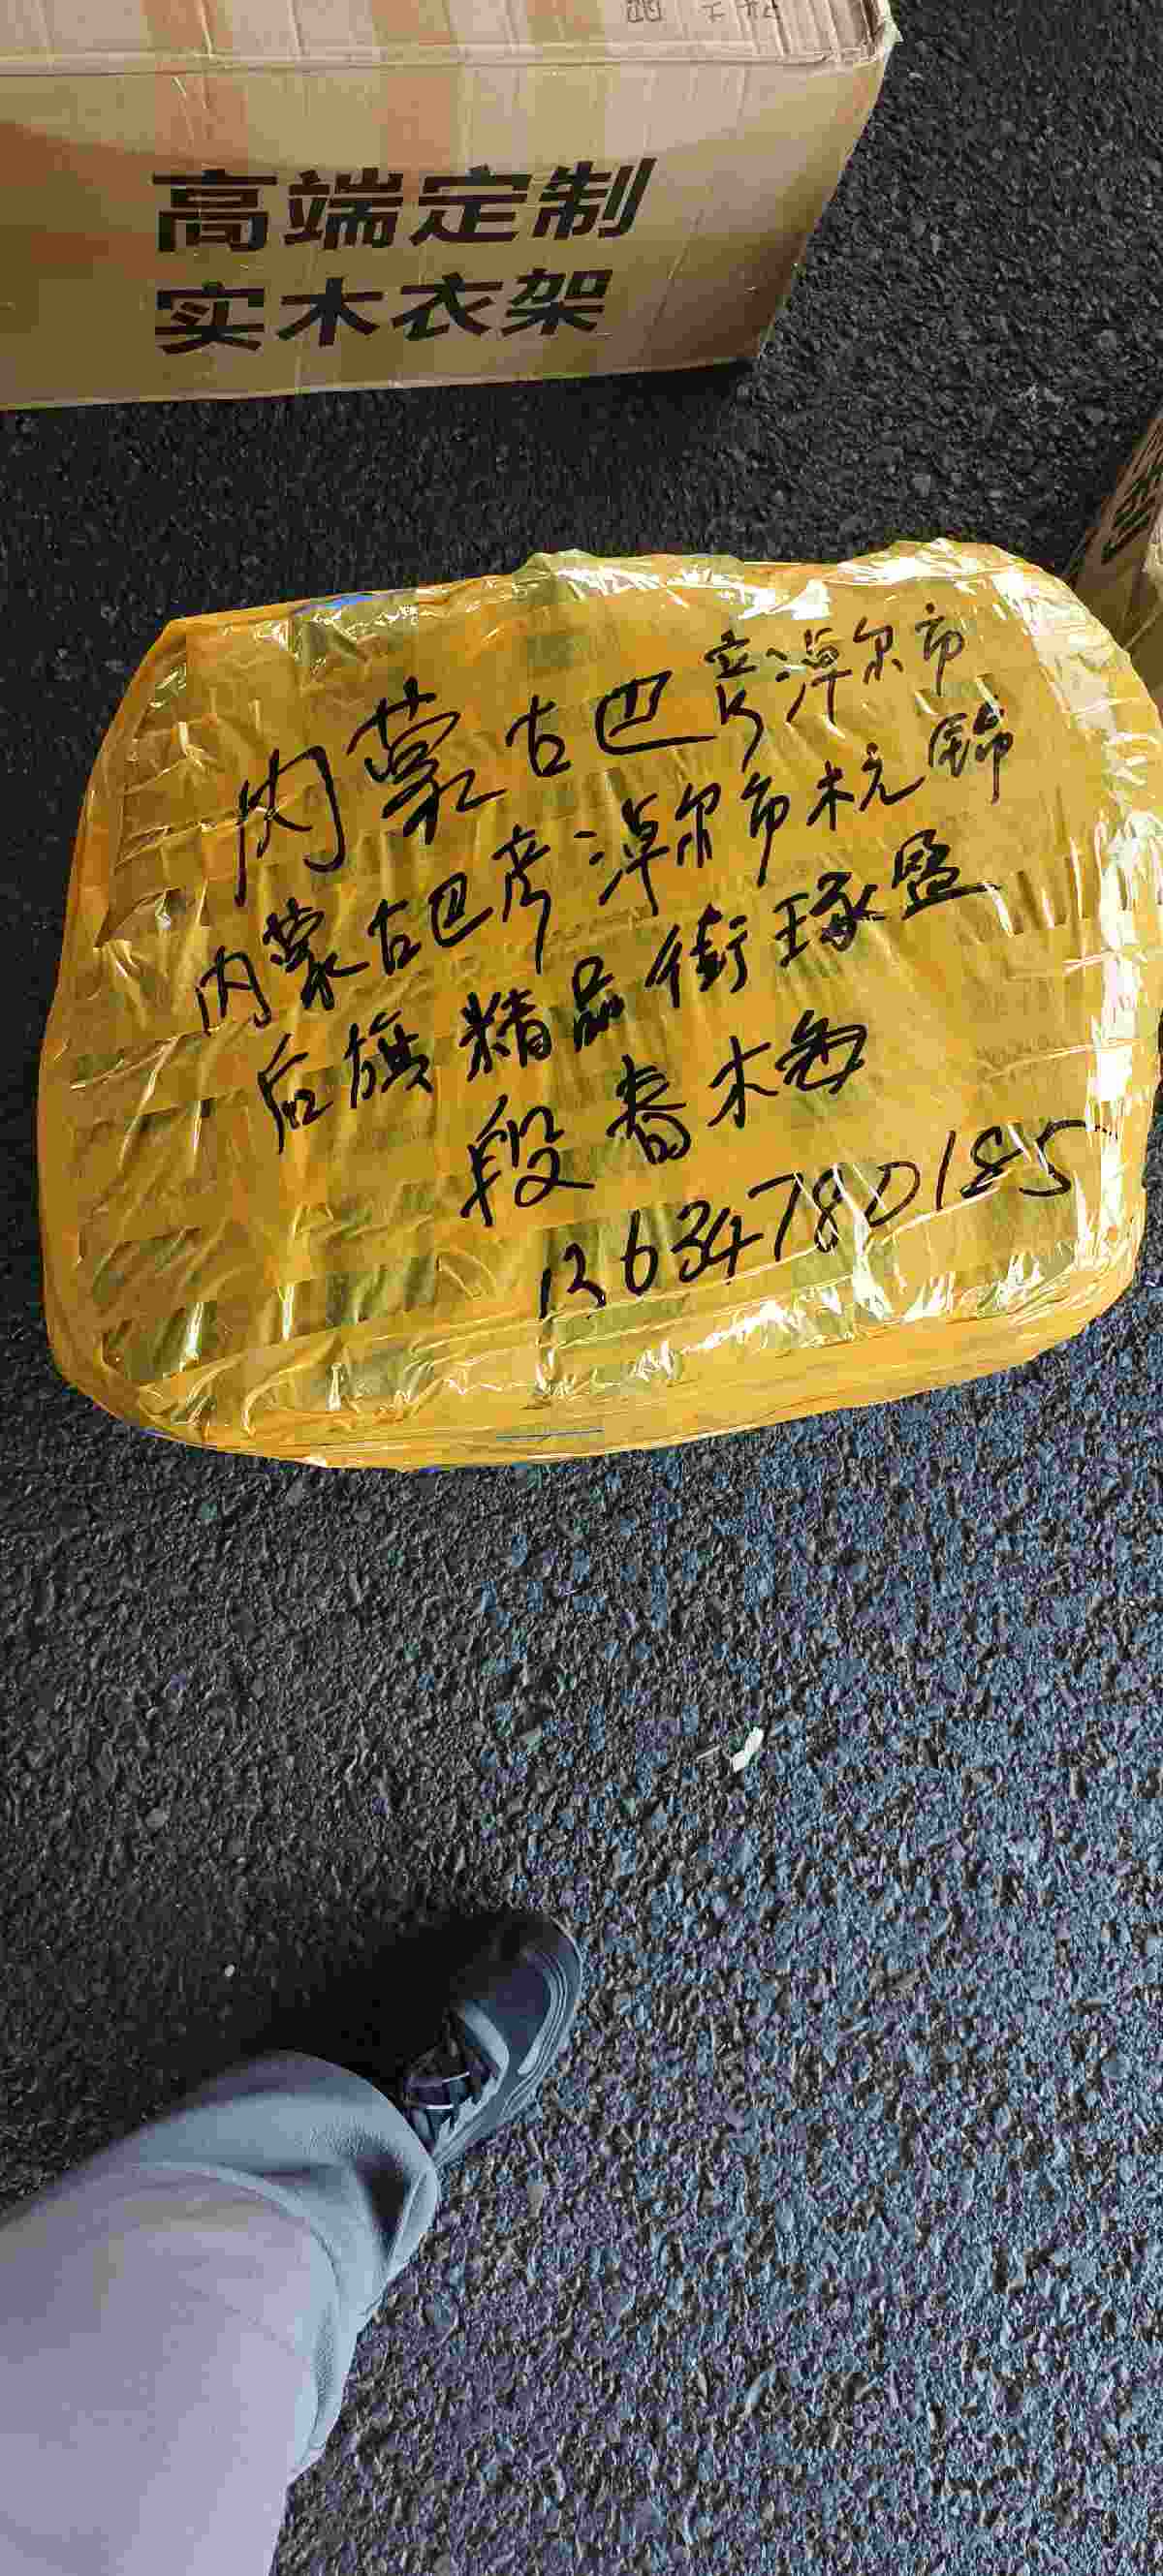 高端定制
实木衣架
内蒙古巴彦淖尔市
内蒙古巴彦淖尔市杭锦
后旗精品街琢盟
段春梅
13634780185